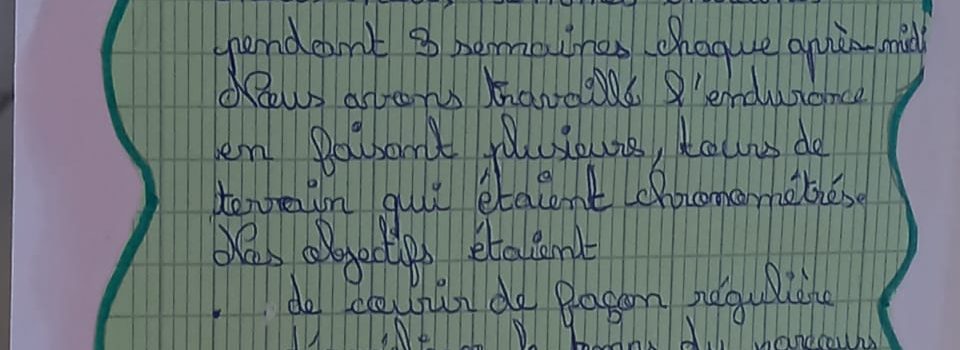 pendant 3 semaines chaque après-midi
Nous avons travaillé l'endurance
en faisant plusieurs, tours de
terrain qui étaient chronométrés.
Nos objectifs étaient
. de courir de façon régulière
du parcours